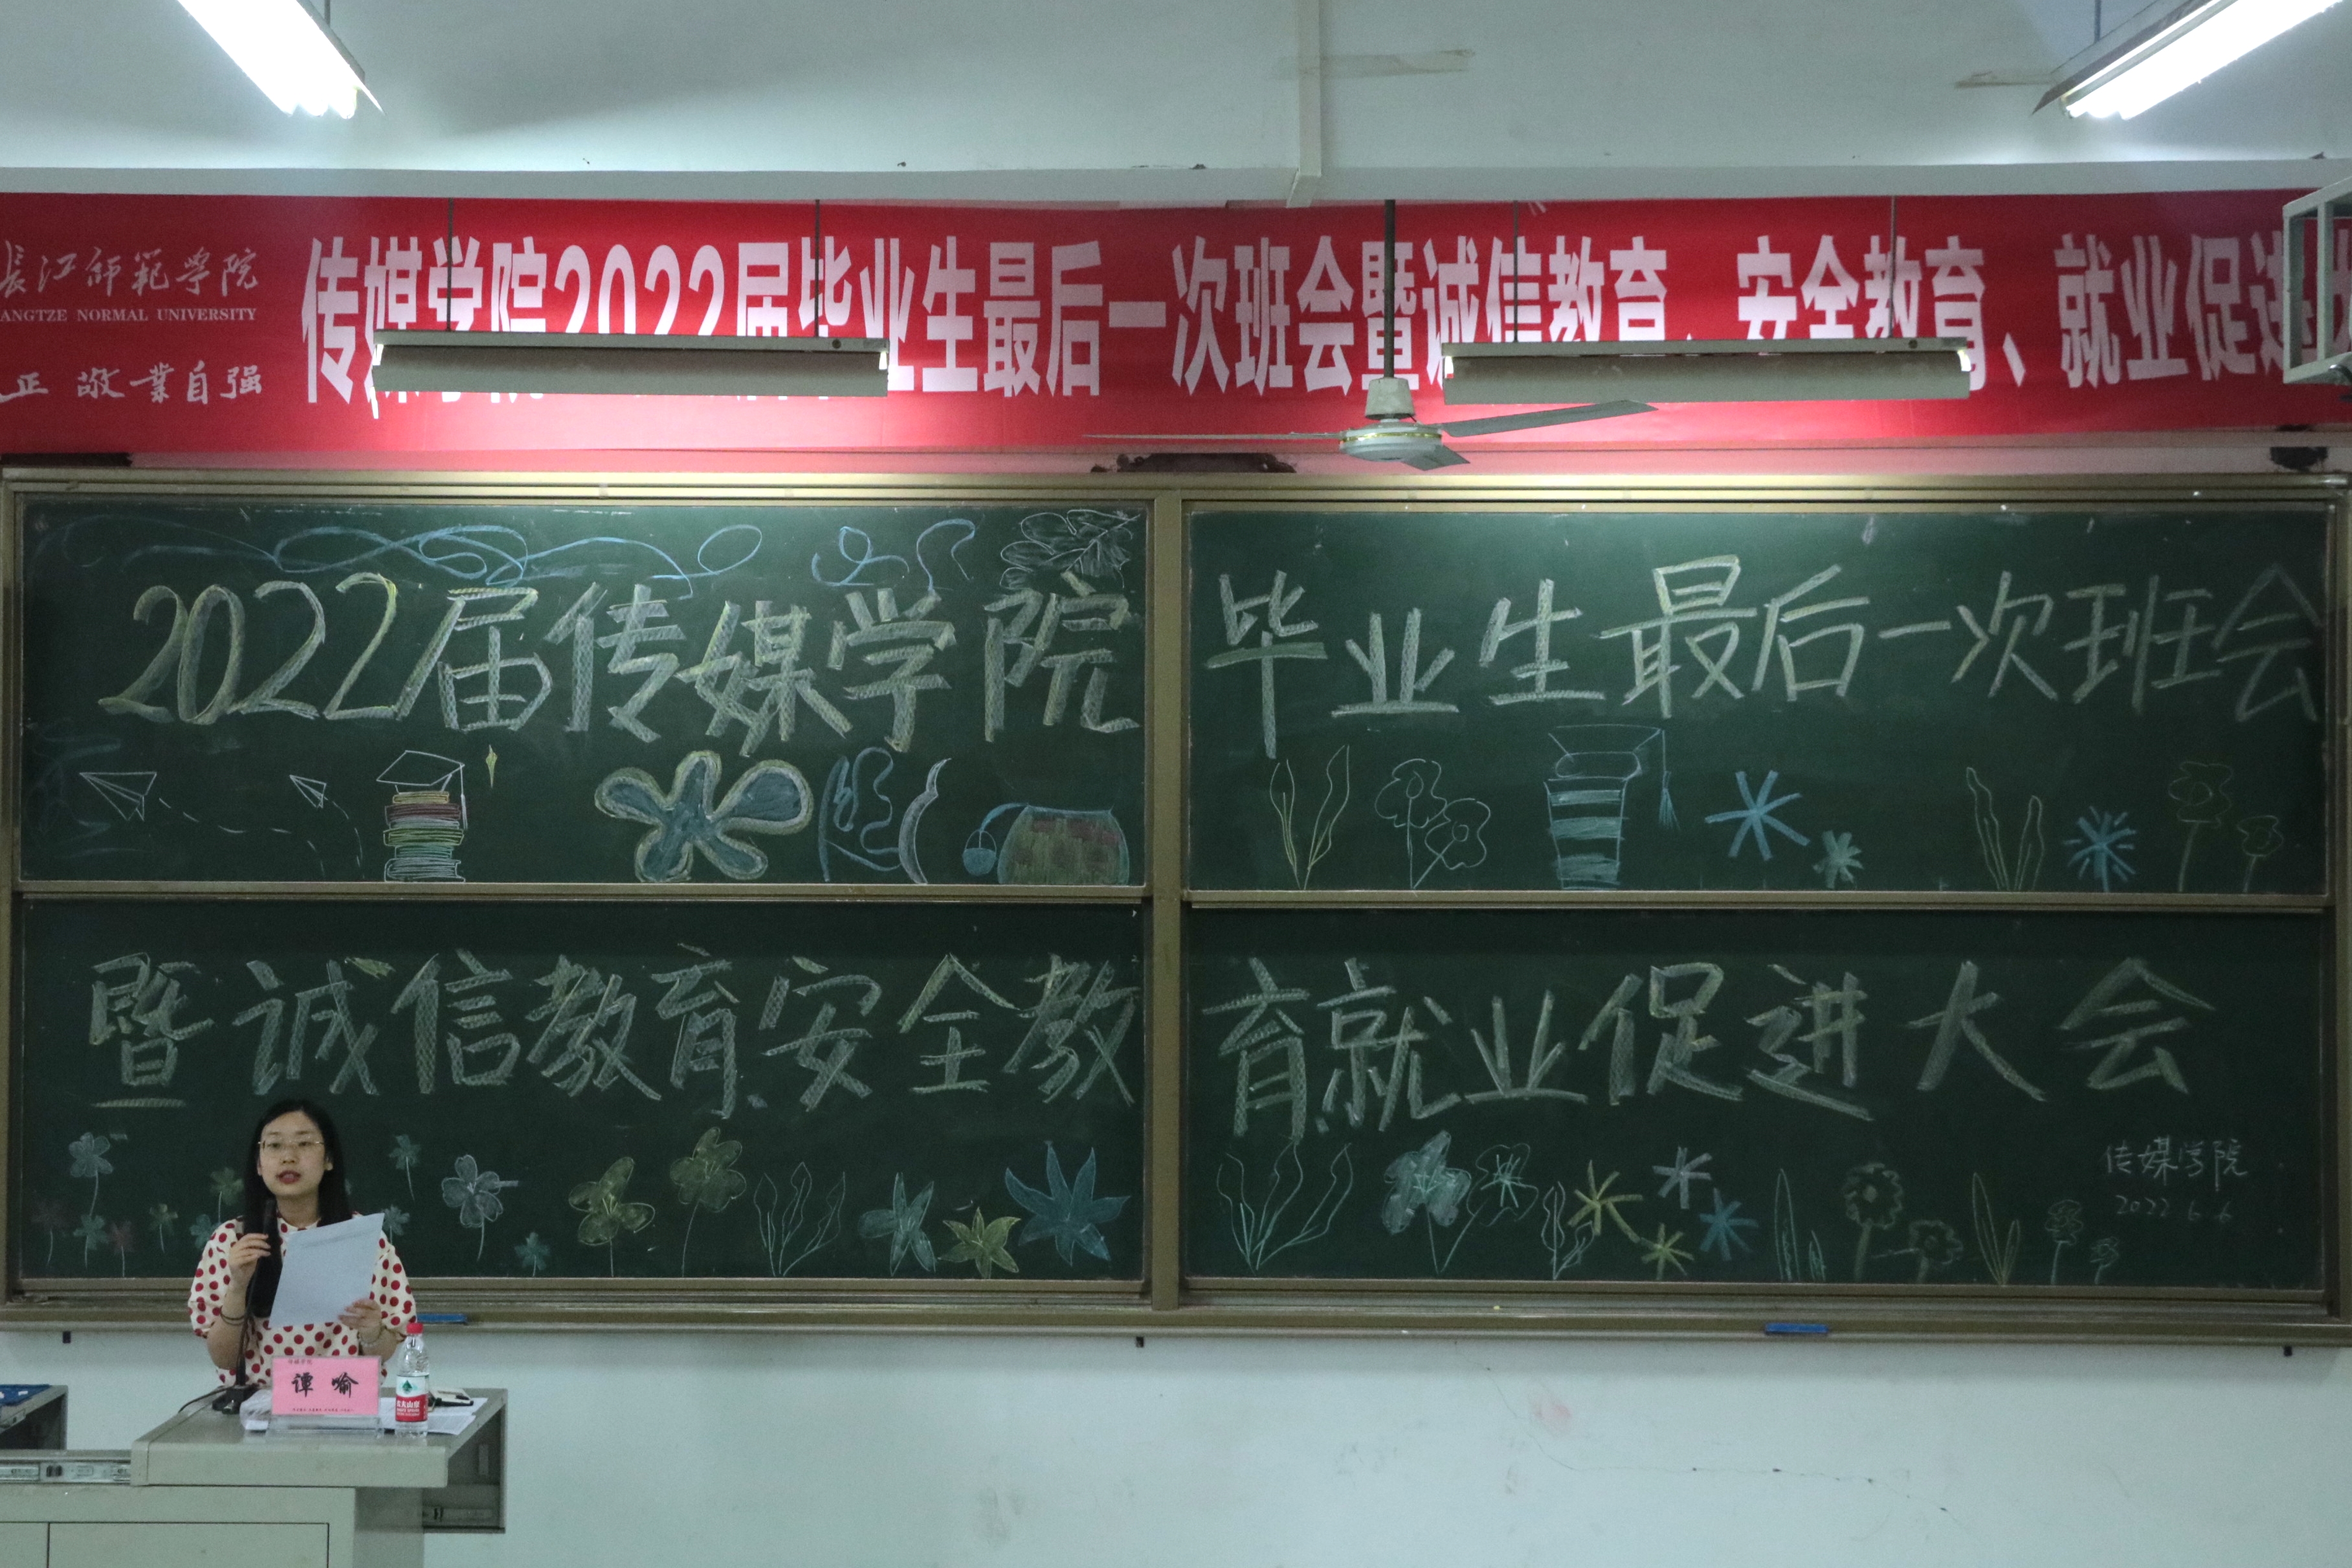 長江師範學院
ANGTZE NORMAL UNIVERSITY
正 敬業自强
传媒学院2022届毕业生最后一次班会暨诚信教育、安全教育、就业促进
2022届传媒学院
毕业生最后一次班会
暨诚信教育、安全教
育、就业促进大会
传媒学院
2022 6.6
传媒学院
谭 喻